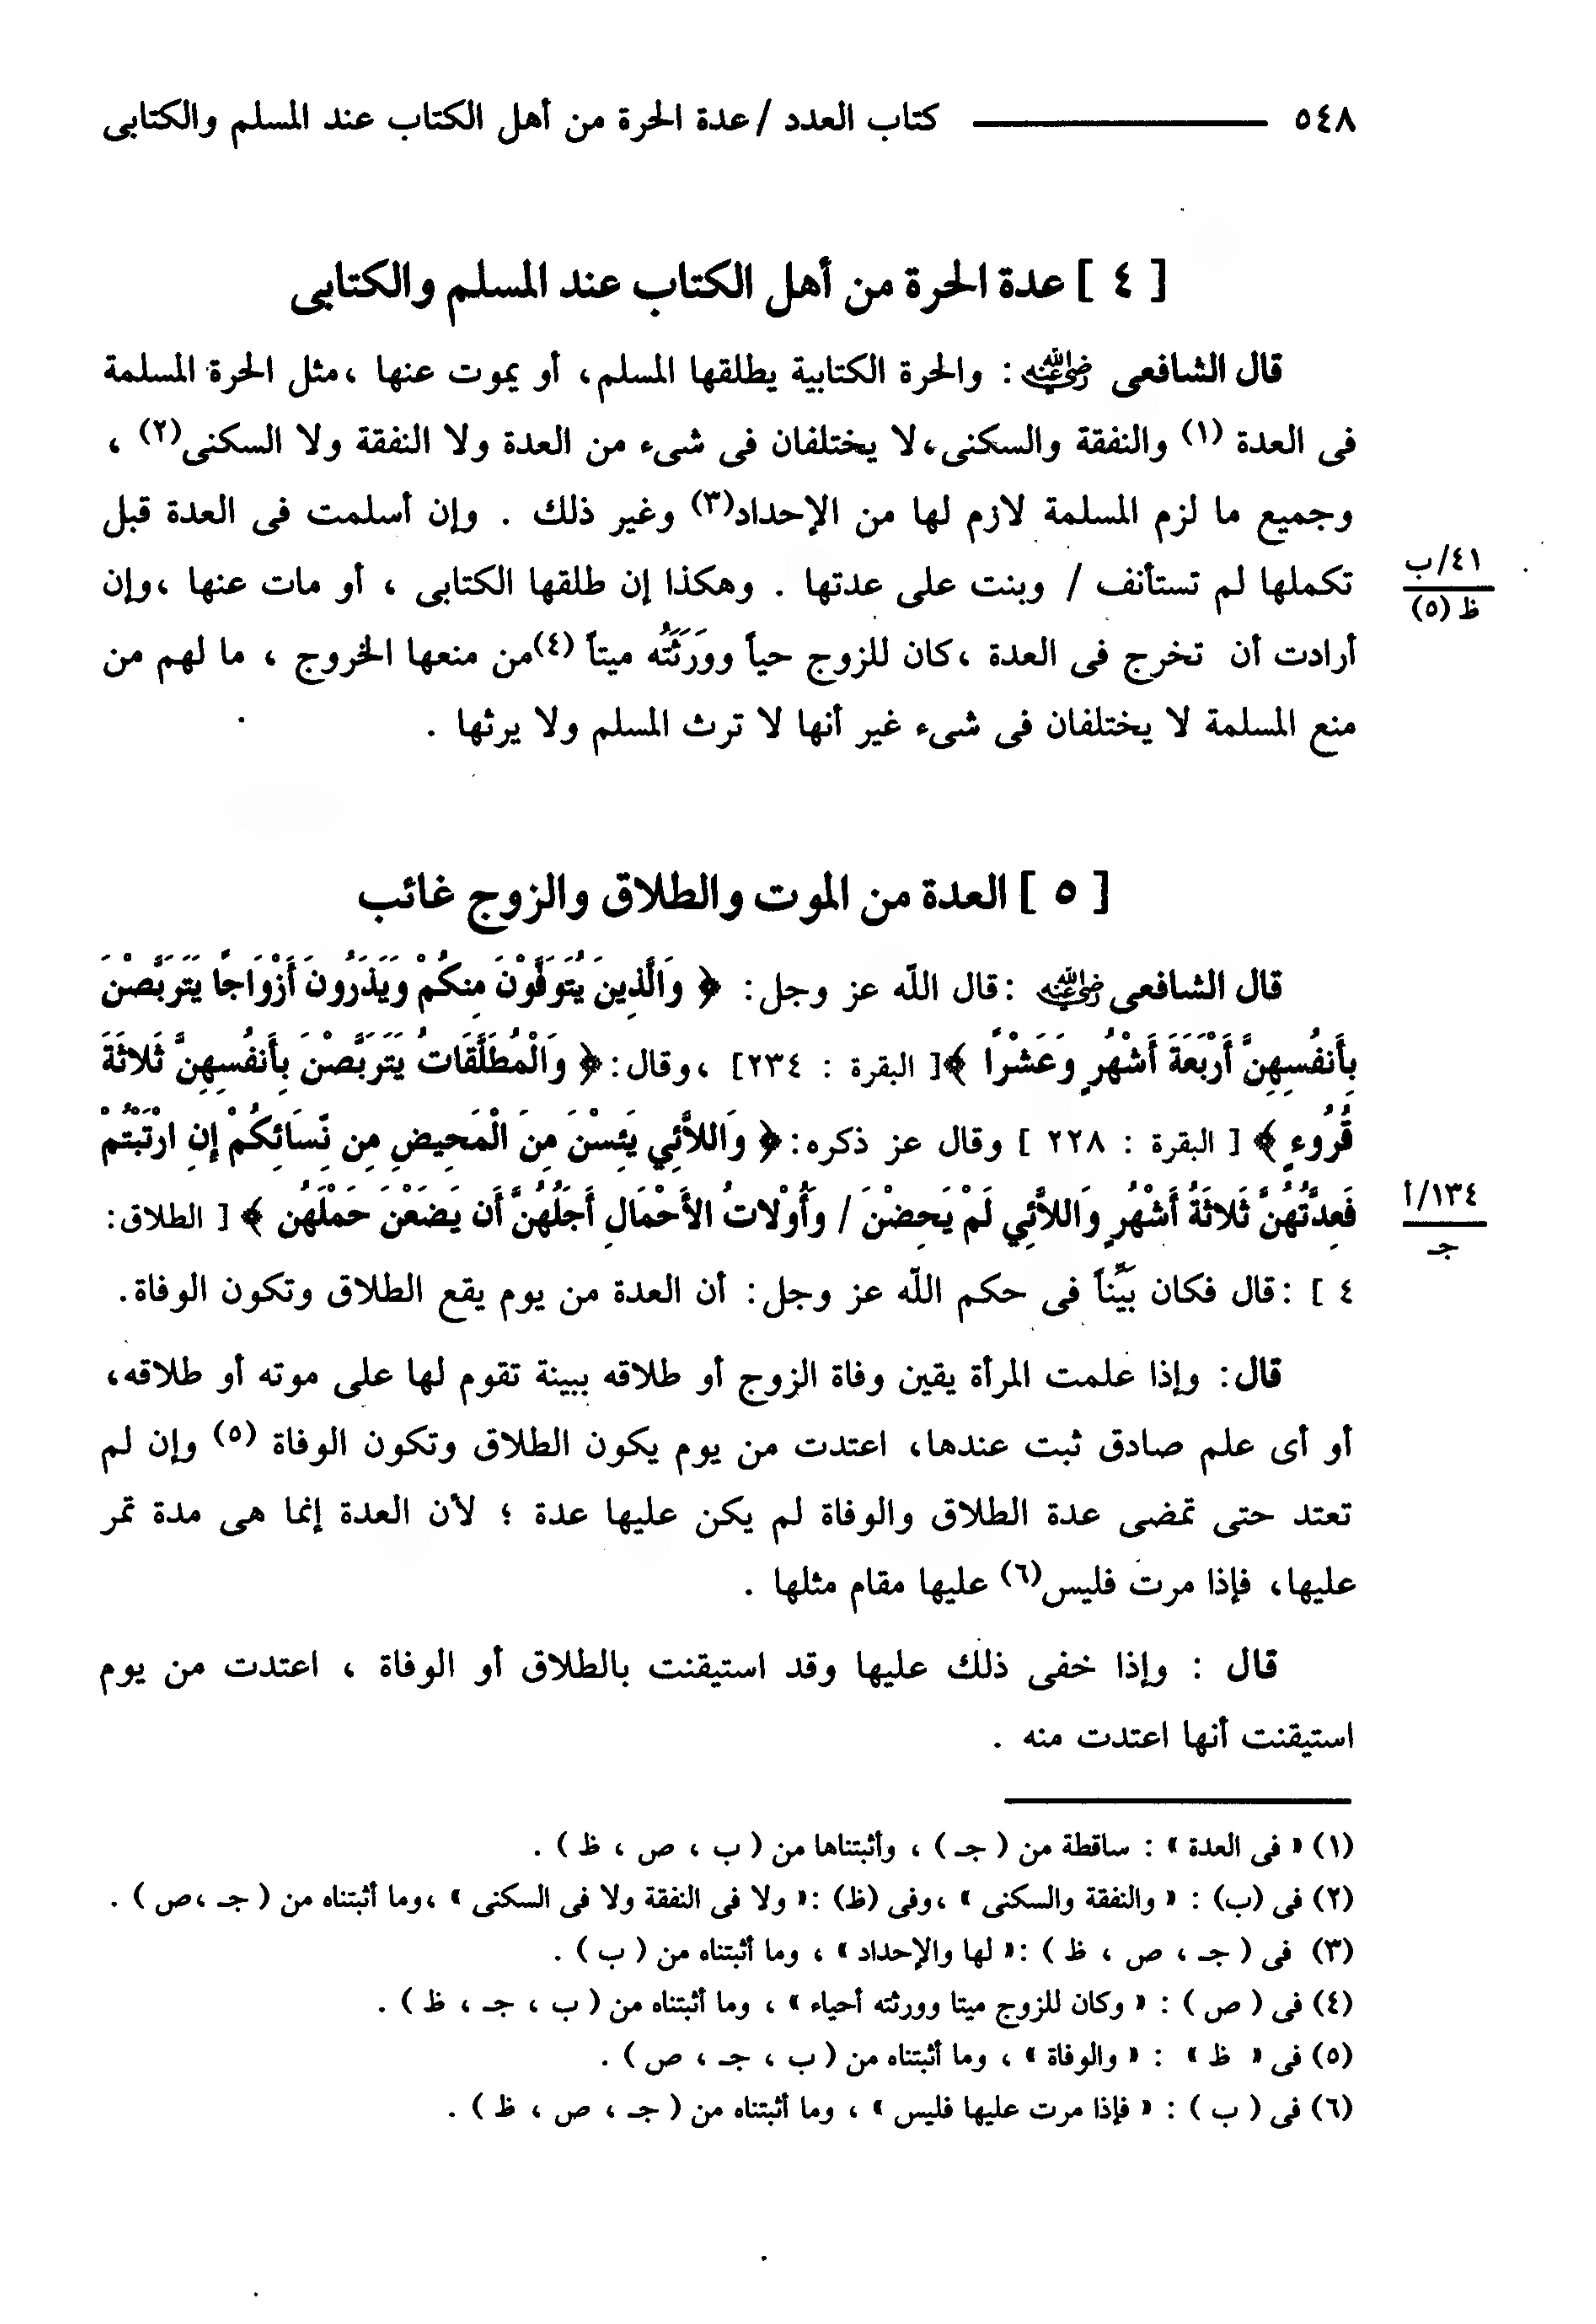 ٥٤٨ ـــــــــ كتاب العدد / عدة الحرة من أهل الكتاب عند المسلم والكتابى
[ ٤ ] عدة الحرة من أهل الكتاب عند المسلم والكتابى
قال الشافعى رضي الله عنه : والحرة الكتابية يطلقها المسلم، أو يموت عنها ،مثل الحرة المسلمة
فى العدة (١) والنفقة والسكنى،لا يختلفان فى شىء من العدة ولا النفقة ولا السكنى(٢) ،
وجميع ما لزم المسلمة لازم لها من الإحداد(٣) وغير ذلك . وإن أسلمت فى العدة قبل
تكملها لم تستأنف / وبنت على عدتها . وهكذا إن طلقها الكتابى ، أو مات عنها ،وإن
٤١/ب
ظ (٥)
أرادت أن تخرج فى العدة ،كان للزوج حياً ووَرَثَتُه ميتاً (٤)من منعها الخروج ، ما لهم من
منع المسلمة لا يختلفان فى شىء غير أنها لا ترث المسلم ولا يرثها .
[ ٥ ] العدة من الموت والطلاق والزوج غائب
قال الشافعى رضي الله عنه :قال اللّه عز وجل: ﴿ وَالَّذِينَ يُتَوَفَّوْنَ مِنكُمْ وَيَذَرُونَ أَزْوَاجًا يَتَرَبَّصْنَ
بِأَنفُسِهِنَّ أَرْبَعَةَ أَشْهُرٍ وَعَشْرًا ﴾[ البقرة : ٢٣٤] ،وقال:﴿ وَالْمُطَلَّقَاتُ يَتَرَبَّصْنَ بِأَنفُسِهِنَّ ثَلاثَةَ
قُرُوءٍ ﴾ [ البقرة : ٢٢٨ ] وقال عز ذكره:﴿ وَاللاَّئِي يَئِسْنَ مِنَ الْمَحِيضِ مِن نِّسَائِكُمْ إِنِ ارْتَبْتُمْ
فَعِدَّتُهُنَّ ثَلاثَةُ أَشْهُرٍ وَاللاَّئِي لَمْ يَحِضْنَ / وَأُوْلاتُ الأَحْمَالِ أَجَلُهُنَّ أَن يَضَعْنَ حَمْلَهُن ﴾ [ الطلاق:
١٣٤/أ
جـ
٤ ] :قال فكان بَيِّناً فى حكم اللّه عز وجل: أن العدة من يوم يقع الطلاق وتكون الوفاة.
قال: وإذا علمت المرأة يقين وفاة الزوج أو طلاقه ببينة تقوم لها على موته أو طلاقه،
أو أى علم صادق ثبت عندها، اعتدت من يوم يكون الطلاق وتكون الوفاة (٥) وإن لم
تعتد حتى تمضى عدة الطلاق والوفاة لم يكن عليها عدة ؛ لأن العدة إنما هى مدة تمر
عليها، فإذا مرت فليس(٦) عليها مقام مثلها .
قال : وإذا خفى ذلك عليها وقد استيقنت بالطلاق أو الوفاة ، اعتدت من يوم
استيقنت أنها اعتدت منه .
(١) « فى العدة » : ساقطة من ( جـ ) ، وأثبتناها من ( ب ، ص ، ظ ) .
(٢) فى (ب) : « والنفقة والسكنى » ،وفى (ظ) :« ولا فى النفقة ولا فى السكنى » ،وما أثبتناه من ( جـ ،ص ) .
(٣) فى ( جـ ، ص ، ظ ) :« لها والإحداد» ، وما أثبتناه من ( ب ) .
(٤) فى ( ص ) : « وكان للزوج ميتا وورثته أحياء » ، وما أثبتناه من ( ب ، جـ ، ظ ) .
(٥) فى « ظ » : « والوفاة » ، وما أثبتناه من ( ب ، جـ ، ص ) .
(٦) فى ( ب ) : « فإذا مرت عليها فليس » ، وما أثبتناه من ( جـ ، ص ، ظ ) .